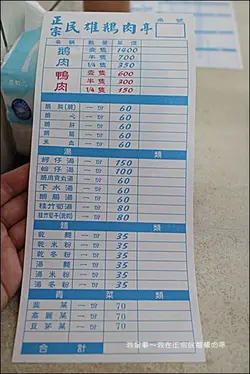 正宗 民雄鵝肉亭 桌號
名稱 數量 單價
鵝肉 壹隻 1400
半隻 700
1/4隻 350
鴨肉 壹隻 600
半隻 300
1/4隻 150
一份 60
鵝心 一份 60
鵝肝 一份 60
鵝腸 一份 60
米血 一份 60
湯類
蚵仔湯 一份 150
蛤仔湯 一份 100
鵝肉貢丸湯 一份 60
下水湯 一份 60
鵝腸湯 一份 60
桂竹筍湯 一份 80
一份 80
麵類
乾麵 一份 35
乾米粉 一份 35
乾冬粉 一份 35
湯麵 一份 35
湯米粉 一份 35
湯冬粉 一份 35
青菜類
韭菜 一份 70
高麗菜 一份 70
豆芽菜 一份 70
合計